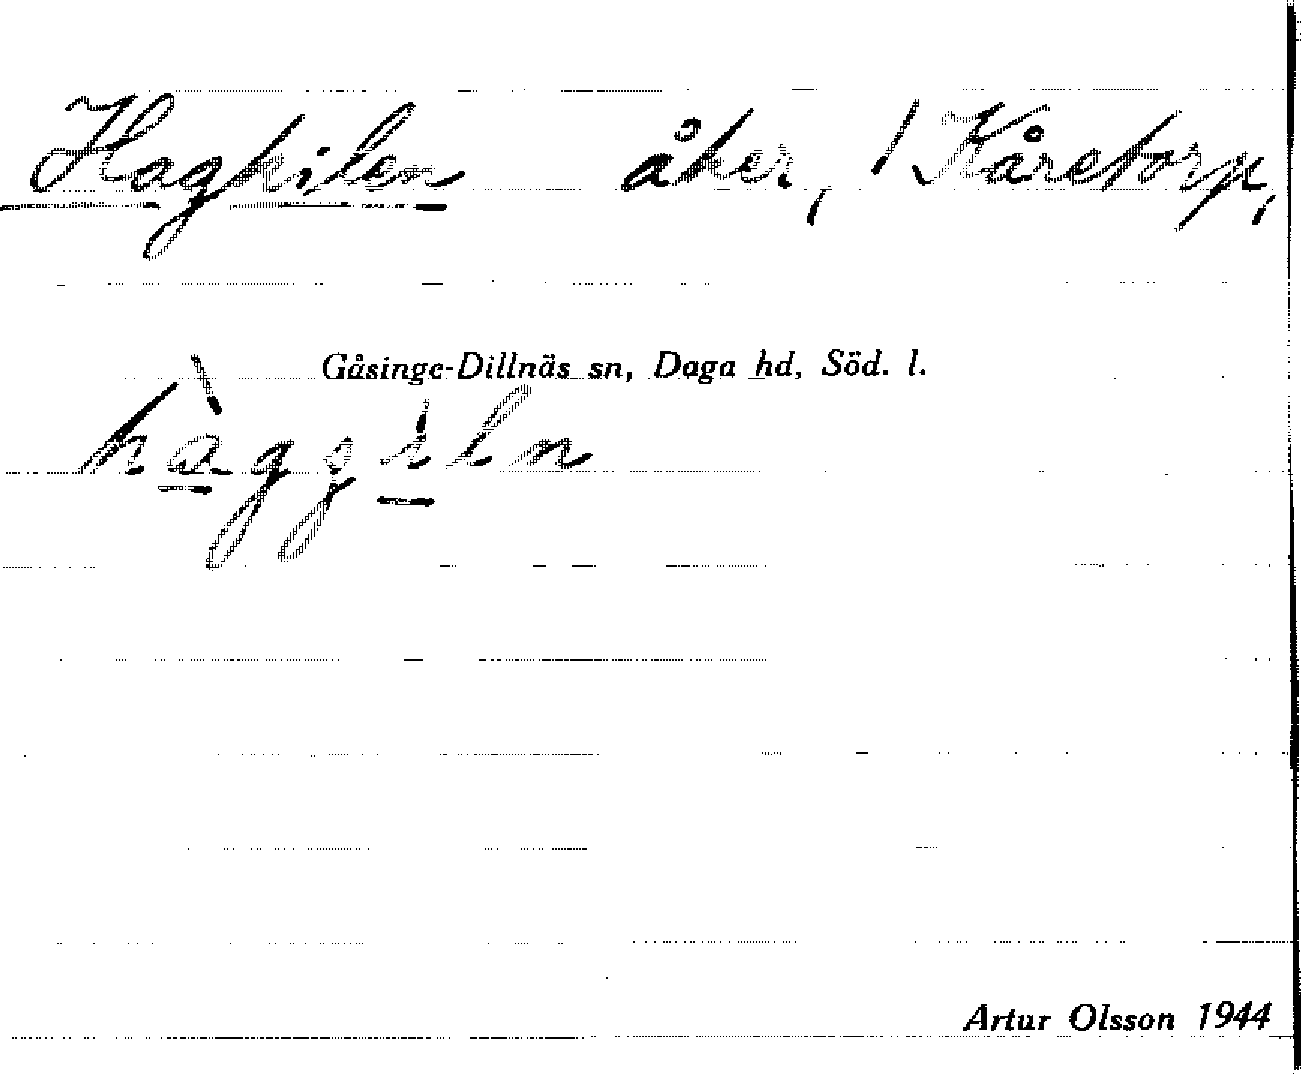 Hagkilen åker, / Kåretorp,
Gåsinge-Dillnäs sn, Daga hd, Söd. l.
Artur Olsson 1944